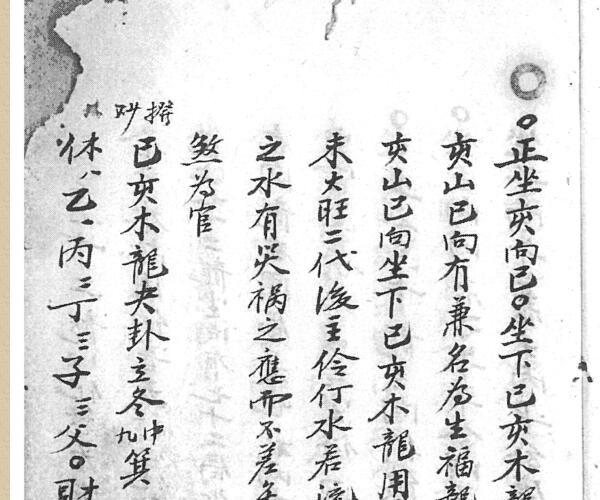 正坐亥向巳○坐下巳亥木龍
亥山巳向有兼名為生福龍
亥山巳向坐下巳亥木龍用
未大旺二代後主伶仃水若流
之水有災禍之應而不差矣
煞為官
撰
巳亥木龍夬卦立冬中九箕
休乙一丙二丁三子三父○財